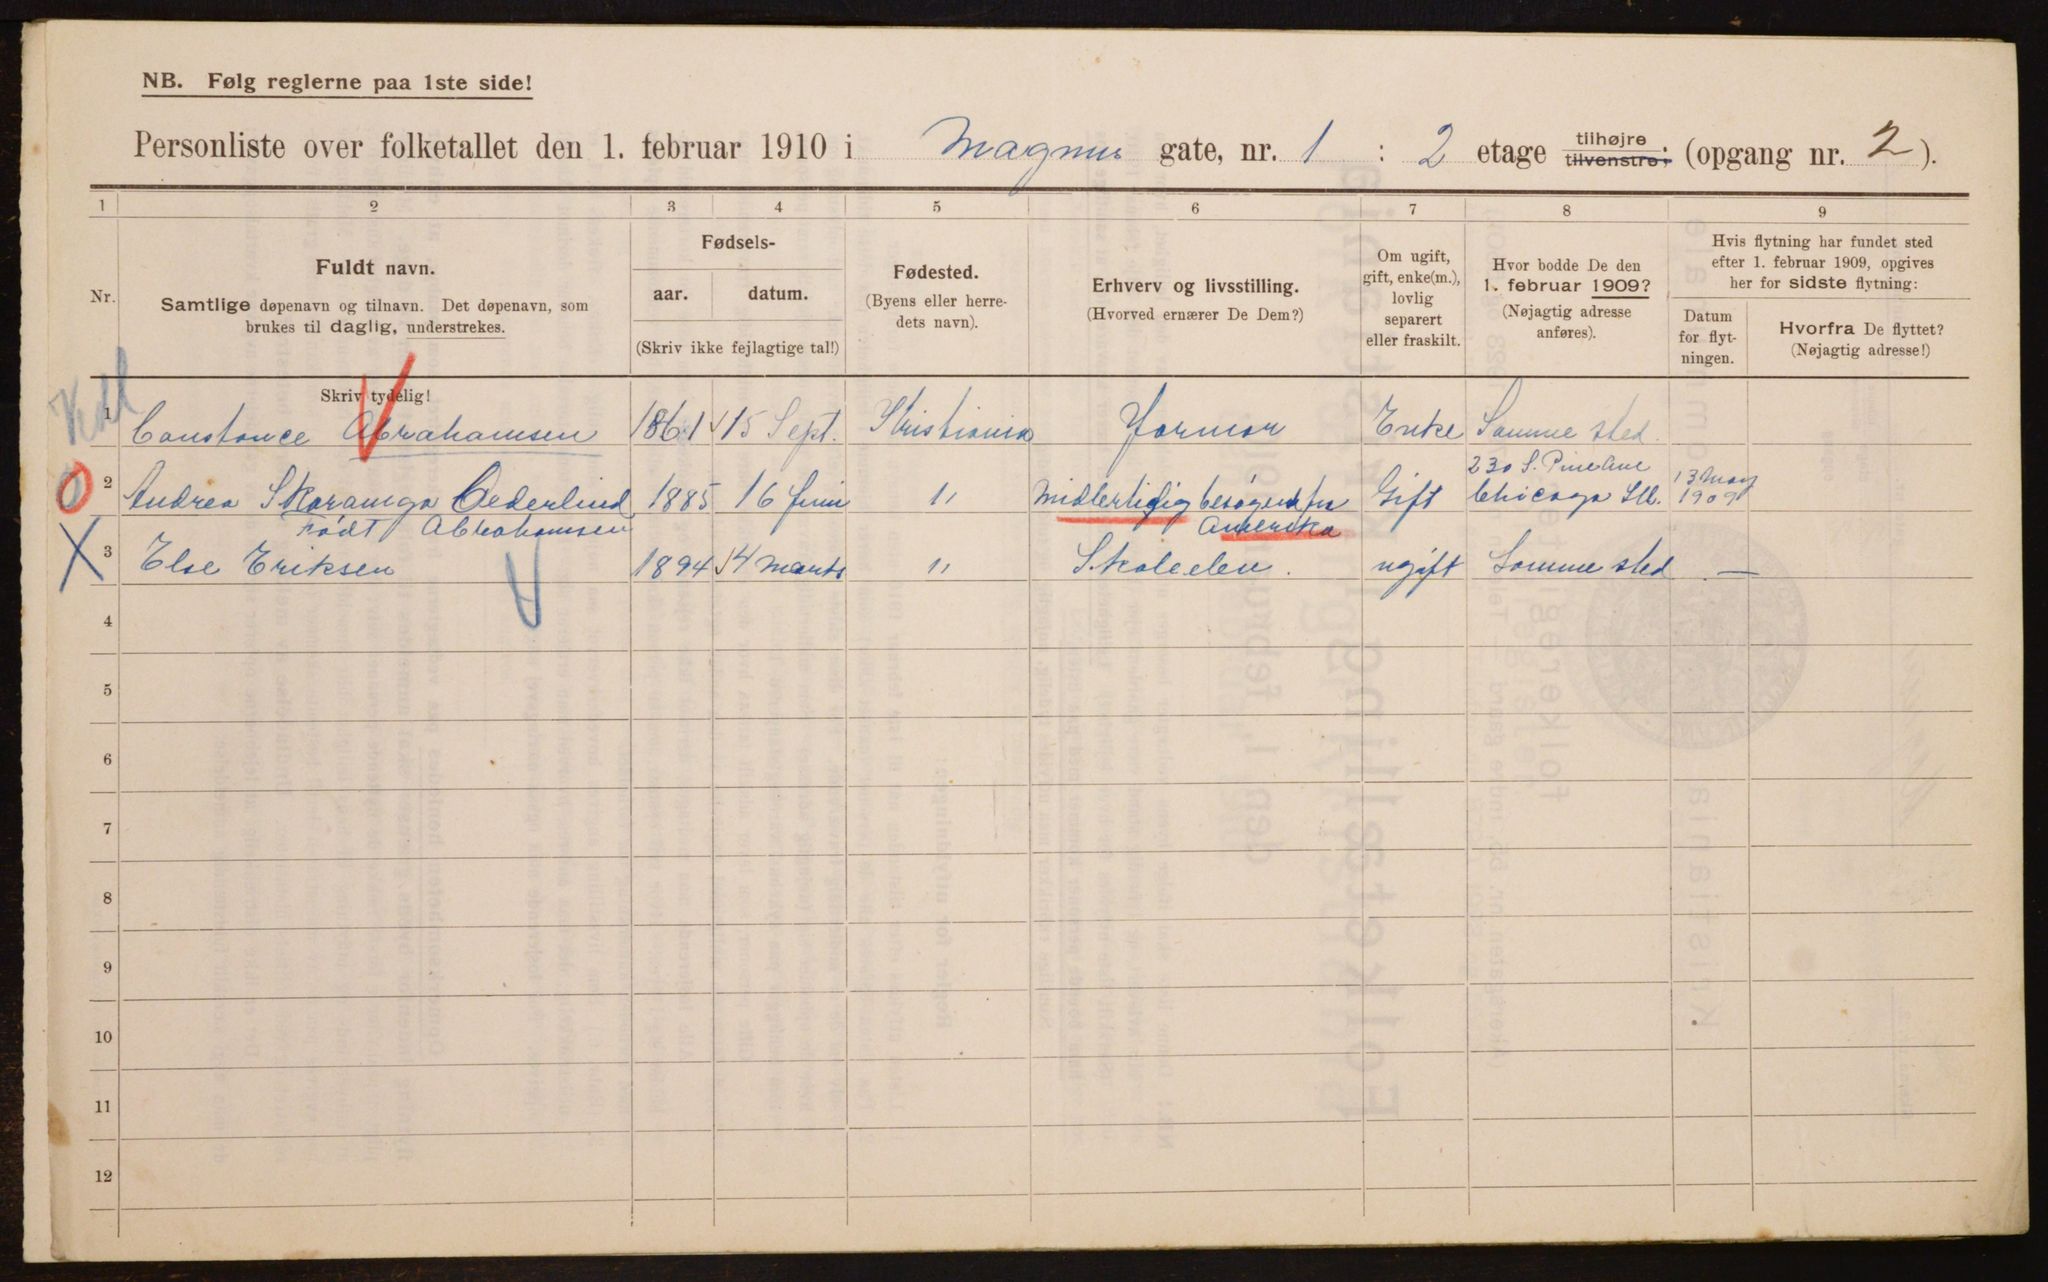 NB. Følg reglerne paa 1ste side!
Personliste over folketallet den 1. februar 1910 i Magnus gate, nr. 1 : 2 etage tilhøjre: tilvenstre; (opgang nr. 2).
1 2 3 4 5 6 7 8 9
Nr.
Fuldt navn.
Samtlige døpenavn og tilnavn. Det døpenavn, som
brukes til daglig, understrekes.
Fødsels-
aar. datum.
(Skriv ikke fejlagtige tal!)
Fødested.
(Byens eller herre-
dets navn).
Erhverv og livsstilling.
(Hvorved ernærer De Dem?)
Om ugift,
gift, enke(m.),
lovlig
separert
eller fraskilt.
Hvor bodde De den
1. februar 1909?
(Nøjagtig adresse
anføres).
Hvis flytning har fundet sted
efter 1. februar 1909, opgives
her for sidste flytning:
Datum
for flyt-
ningen.
Hvorfra De flyttet?
(Nøjagtig adresse!)
Skriv tydelig!
1 Constance Abrahamsen 1861 15 Sept. Kristiania Enke Samme sted.
230 S. Pine Ave
2 Andrea Skaramga Cederlind 1885 16 Juni " Midlertidig besøgend fra Gift Chicago Ill. 13 May 1909
Født Abrahamsen Amerika
3 Else Eriksen 1894 14 Marts " Skoleelev. ugift Samme sted —
4
5
6
7
8
9
10
11
12